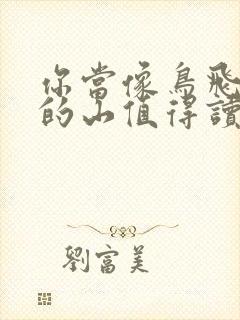 你當像鳥飛
的山值得讀
劉富美